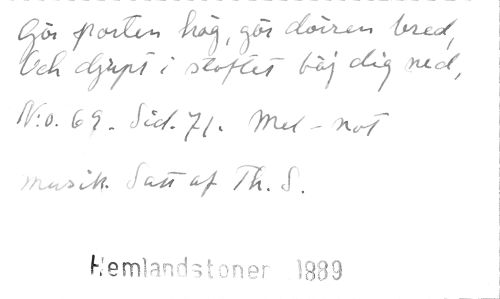 Gör porten hög, gör dörren bred,
Och djupt i stoftet böj dig ned,
N:o. 69. Sid. 71. Mel-not
musik. Satt af Th. S.
Hemlandstoner 1889